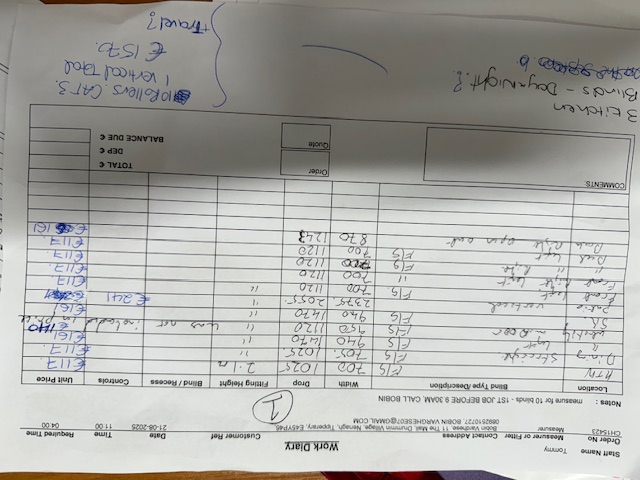 Work Diary
Staff Name Tommy
Order No Measurer or Fitter Contact Address Customer Ref Date Time Required Time
CH15423 Measurer Bobin Varghese, 11 The Mall, Drummin Village, Nenagh, Tipperary, 21-08-2025 11:00 04:00
0892510727, BOBIN.VARGHESE07@GMAIL.COM
Notes : measure for 10 blinds - 1ST JOB BEFORE 9.30AM, CALL BOBIN
1
Location Blind Type /Description Width Drop Fitting Height Blind / Recess Controls Unit Price
KTN F/S 700 1025 2.1m €117
Dining straight F/S 705 1025 " €117
" left 940 1470 " €161
Utility in Door F/S 950 1120 was not included in price
F/S 940 1470 " €161
Patio vertical 2375 2055 " €241
Front left F/S 700 1120 "
Front right left 700 1120 €117
" right F/S 700 1120 €117
Back left F/S 700 1120 €117
Back right open out 870 1243 €161
COMMENTS
Order
Quote
TOTAL €
DEP €
BALANCE DUE €
3 kitchen
Blinds - Day+night.?
10 Rollers. CAT 3.
1 vertical total
€1570.
+travel?